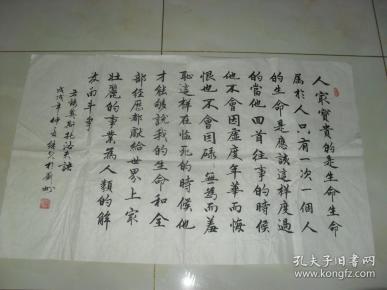 人最寶貴的是生命生命
属於人只有一次一個人
的生命是應該這樣度過
的當他回首往事的時候
他不會因虚度年華而悔
恨也不會因碌碌無為而羞
恥這樣在臨死的時候他
才能够說我的生命和全
部经歷都獻给世界上最
壯麗的事業為人類的解
放而斗争
奥斯托洛夫
戊戌年仲夏
孔夫子旧书网